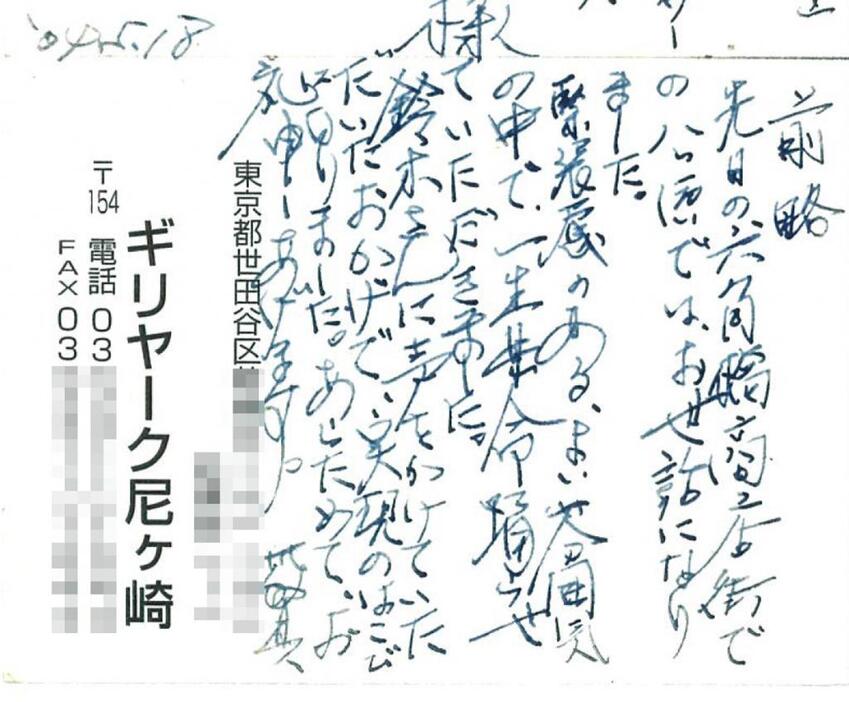 様
前略
先日の六角橋商店街で
の公演では、お世話になり
ました。
緊張感のある、よい雰囲気
の中で、一生懸命踊らせ
ていただきました。
鈴木さんに声をかけていた
だいたおかげで、実現のはこび
となりました。あらためて、お
礼申しあげます。
東京都世田谷区
ギリヤーク尼ヶ崎
〒154 電話03
FAX03
'04.5.18